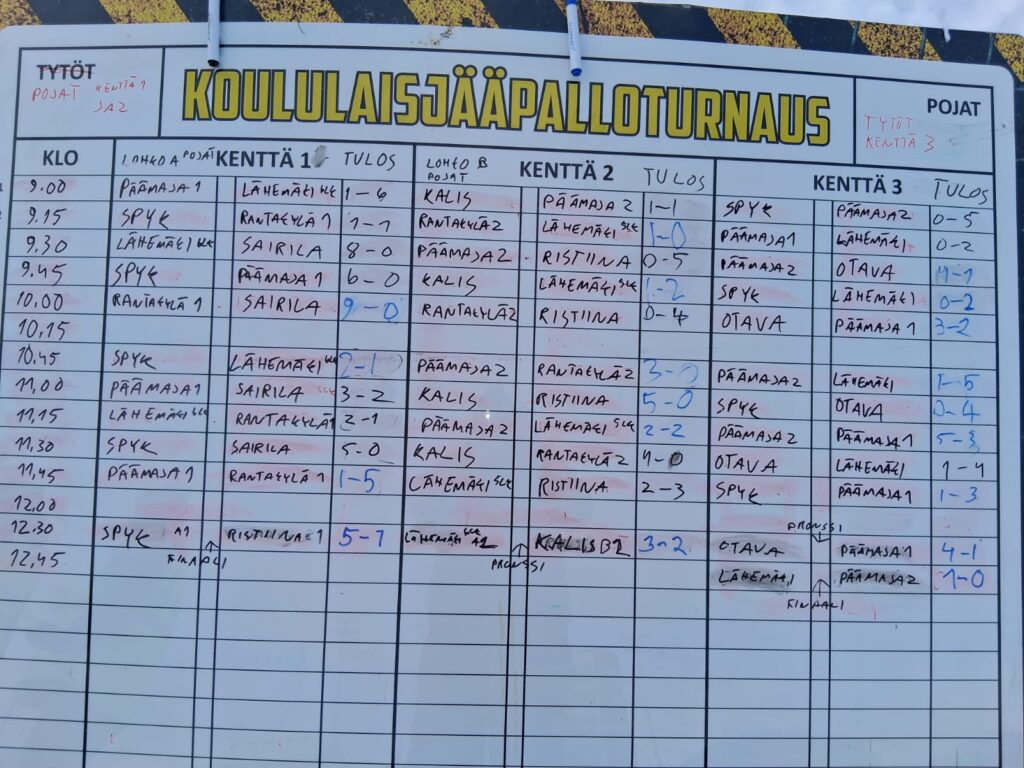 TYTÖT
POJAT KENTTÄ 1
JA 2
KOULULAISJÄÄPALLOTURNAUS
POJAT
TYTÖT
KENTTÄ 3
KLO LOHKO A POJAT KENTTÄ 1 TULOS LOHKO B POJAT KENTTÄ 2 TULOS KENTTÄ 3 TULOS
9.00 PÄÄMAJA 1 LÄHEMÄKI SLK 1-6 KALIS PÄÄMAJA 2 1-1 SPYK PÄÄMAJA2 0-5
9.15 SPYK RANTAKYLÄ 1 1-1 RANTAKYLÄ2 LÄHEMÄKI SLK 1-0 PÄÄMAJA1 LÄHEMÄKI 0-2
9.30 LÄHEMÄKI SLK SAIRILA 8-0 PÄÄMAJA2 RISTIINA 0-5 PÄÄMAJA 2 OTAVA 4-1
9.45 SPYK PÄÄMAJA 1 6-0 KALIS LÄHEMÄKI SLK 1-2 SPYK LÄHEMÄKI 0-2
10.00 RANTAKYLÄ 1 SAIRILA 9-0 RANTAKYLÄ2 RISTIINA 0-4 OTAVA PÄÄMAJA 1 3-2
10.15
10.45 SPYK LÄHEMÄKI SLK 2-1 PÄÄMAJA2 RANTAKYLÄ2 3-0 PÄÄMAJA 2 LÄHEMÄKI 1-5
11.00 PÄÄMAJA1 SAIRILA 3-2 KALIS RISTIINA 5-0 SPYK OTAVA 0-4
11.15 LÄHEMÄKI SLK RANTAKYLÄ1 2-1 PÄÄMAJA2 LÄHEMÄKI SLK 2-2 PÄÄMAJA2 PÄÄMAJA1 5-3
11.30 SPYK SAIRILA 5-0 KALIS RANTAKYLÄ 2 4-0 OTAVA LÄHEMÄKI 1-4
11.45 PÄÄMAJA 1 RANTAKYLÄ 1 1-5 LÄHEMÄKI SLK RISTIINA 2-3 SPYK PÄÄMAJA1 1-3
12.00
PRONSSI
12.30 SPYK A1 RISTIINA 1 5-1 LÄHEMÄKI SLK A2 KALIS B2 3-2 OTAVA PÄÄMAJA1 4-1
12.45 FINAALI PRONSSI LÄHEMÄKI PÄÄMAJA2 1-0
FINAALI